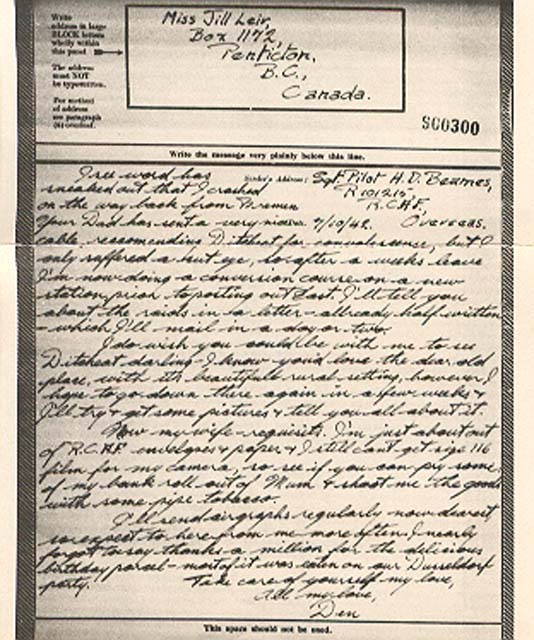 Write
address in large
BLOCK letters
wholly within
this panel
The address
must NOT
be typewritten.
For method
of address
see paragraph
(6) overleaf.
Miss Jill Leir,
Box 1172,
Penticton,
B.C.,
Canada.
S00300
Write the message very plainly below this line.
Sender's Address: Sgt. Pilot H.D. Beames,
R101215
R.C.A.F.
Overseas.
9/10/42.
I see word has
sneaked out that I crashed
on the way back from Bremen
Your Dad has sent a very nice
cable, recommending Ditcheat for convalescense, but I
only suffered a hurt eye, so after a weeks leave
I'm now doing a conversion course on a new
station, prior to posting out East. I'll tell you
about the raids in a letter - allready half written
- which I'll mail in a day or two.
I do wish you could be with me to see
Ditcheat darling - I know you'd love the dear old
place, with its beautiful rural setting, however I
hope to go down there again in a few weeks &
I'll try & get some pictures & tell you all about it.
Now my wife - requisits. I'm just about out
of R.C.A.F. envelopes & paper & I still can't get size 116
film for my camera, so see if you can pry some
of my bank roll out of Mum & shoot me the goods
with some pipe tobacco.
I'll send airgraphs regularly now dearest
so expect to here from me more often. I nearly
forgot to say thanks a million for the delicious
birthday parcel - most of it was eaten on our Dusseldorf
party. Take care of yourself my love,
All my love,
Den
This space should not be used.